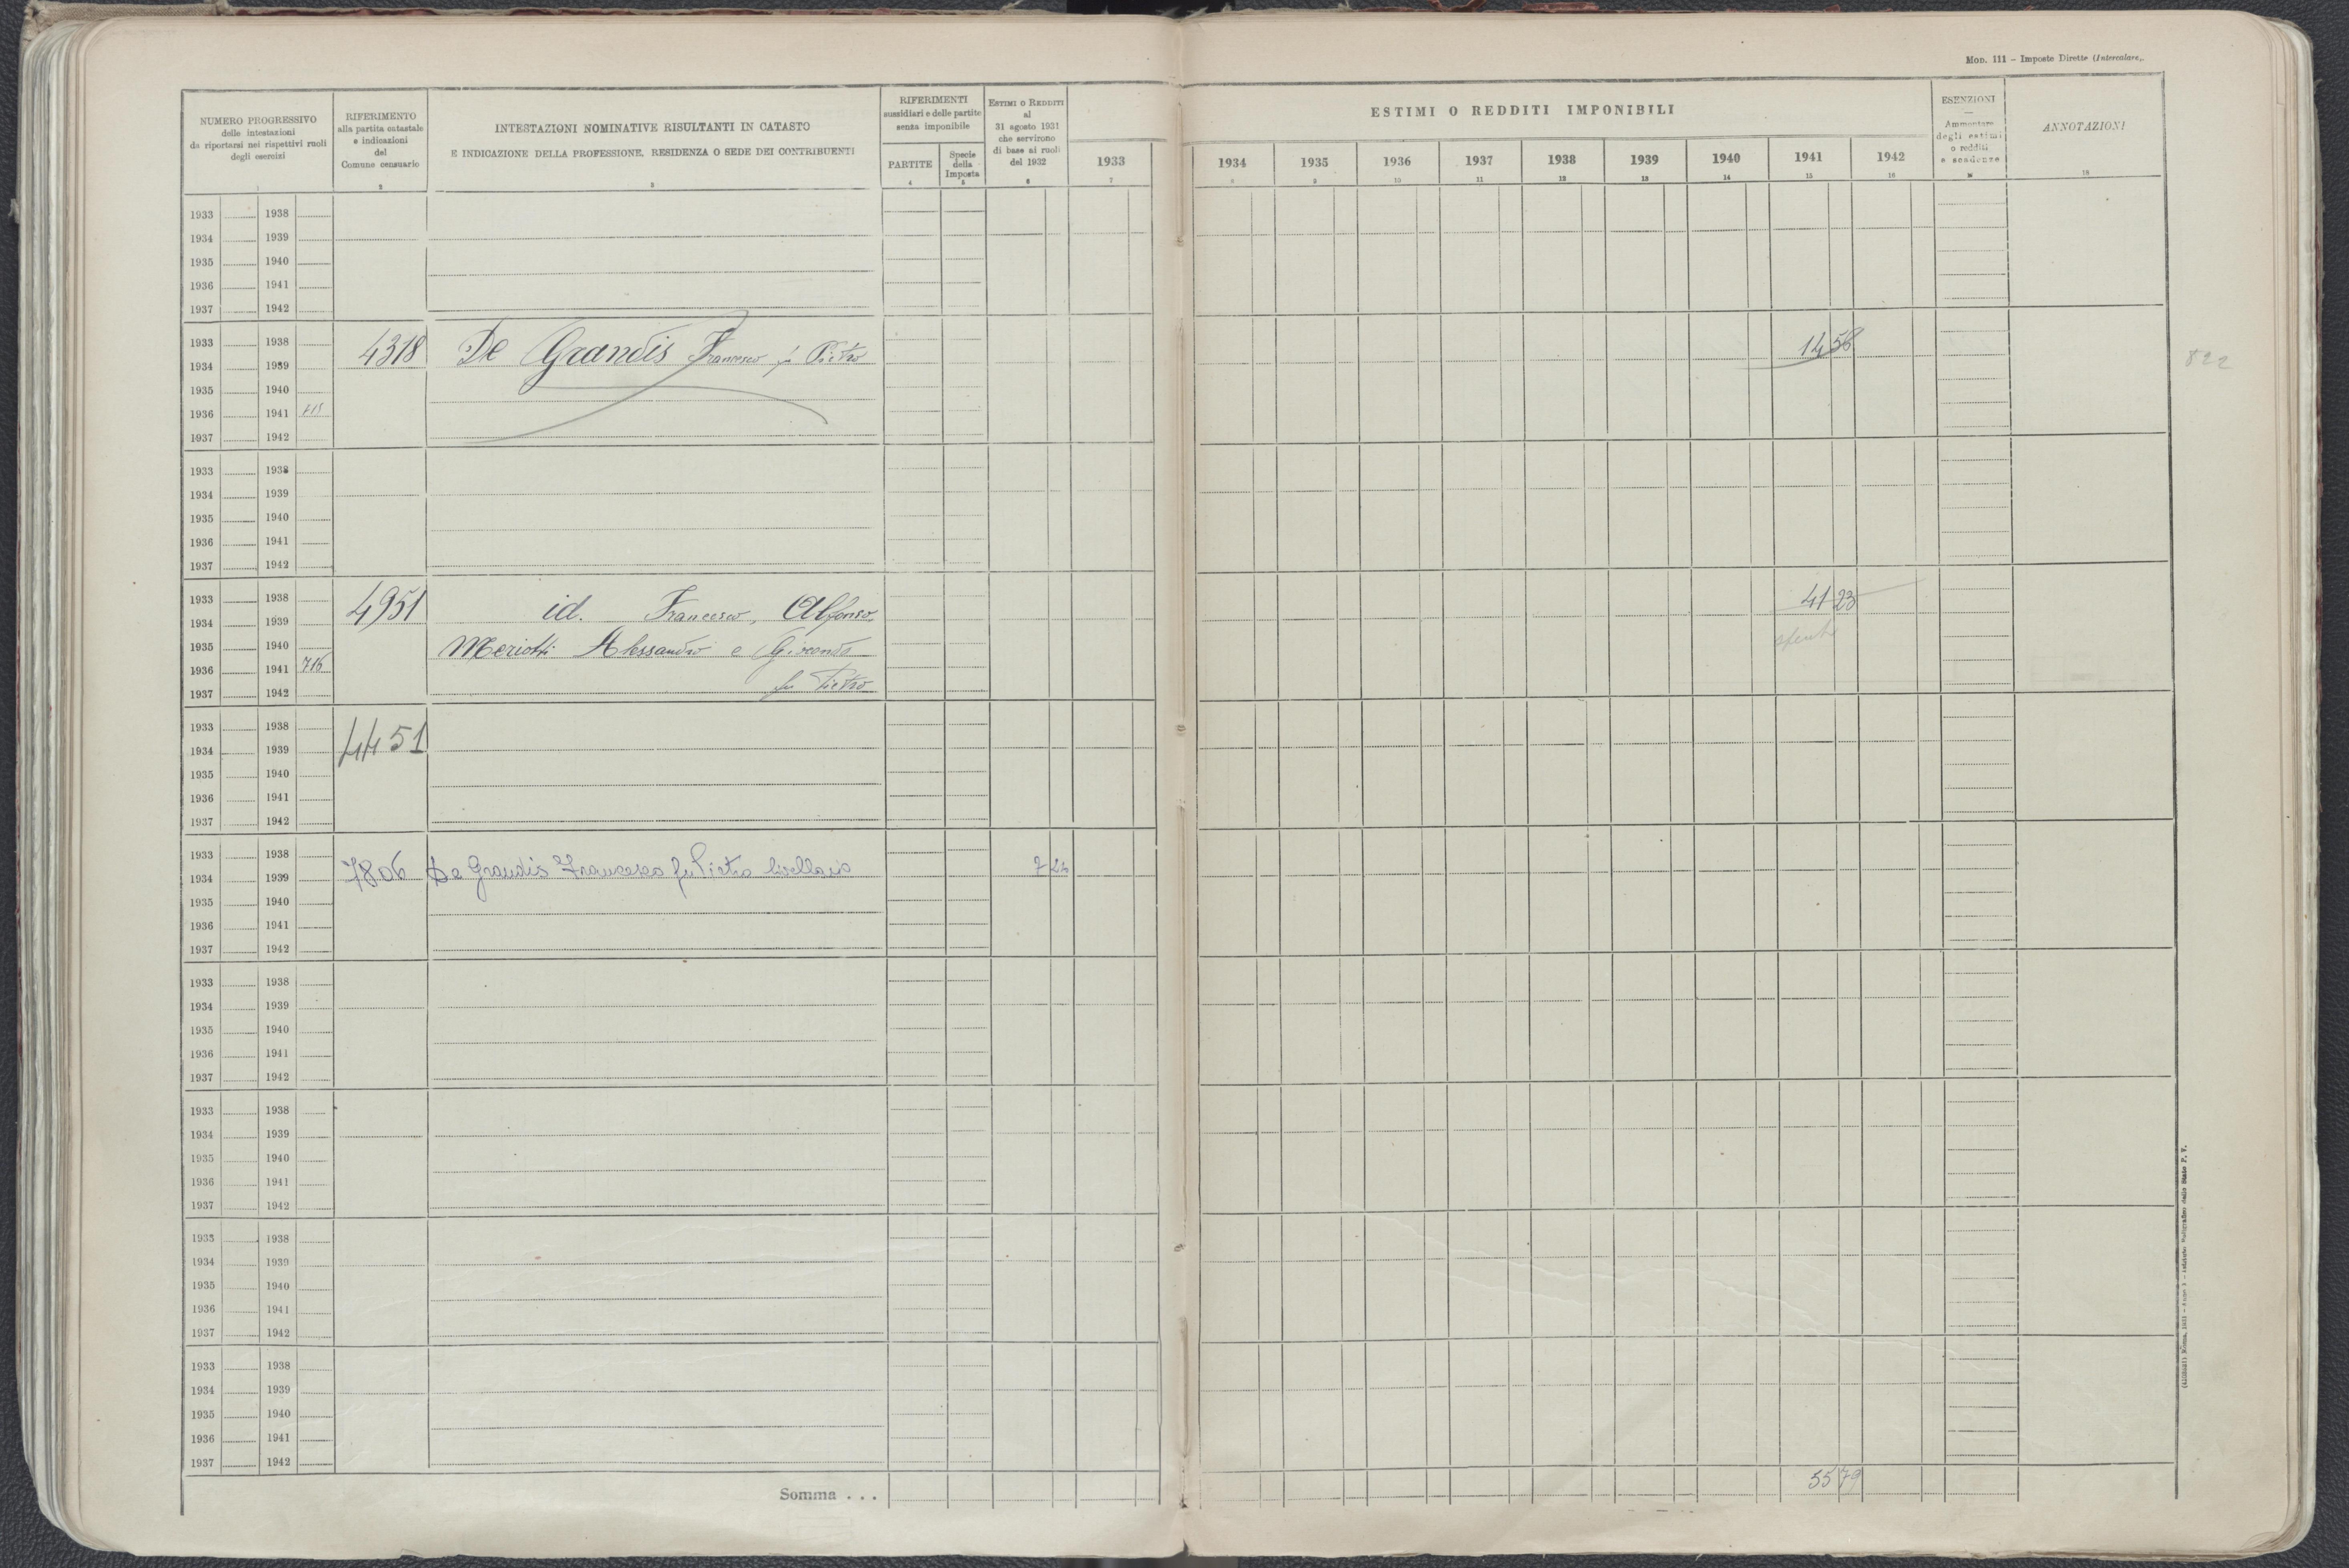 MOD. 111 – Imposte Dirette (Intercalare).
NUMERO PROGRESSIVO
delle intestazioni
da riportarsi nei rispettivi ruoli
degli esercizi
1
RIFERIMENTO
alla partita catastale
e indicazioni
del
Comune censuario
2
INTESTAZIONI NOMINATIVE RISULTANTI IN CATASTO
E INDICAZIONE DELLA PROFESSIONE, RESIDENZA O SEDE DEI CONTRIBUENTI
3
RIFERIMENTI
sussidiari e delle partite
senza imponibile
PARTITE
4
Specie
della
Imposta
5
ESTIMI O REDDITI
al
31 agosto 1931
che servirono
di base ai ruoli
del 1932
6
ESTIMI O REDDITI IMPONIBILI
1933 1934 1935 1936 1937 1938 1939 1940 1941 1942
7 9 10 11 12 13 14 15 16
ESENZIONI
Ammontare
degli estimi
o redditi
e scadenze
ANNOTAZIONI
18
1933 1938
1934 1939
1935 1940
1936 1941
1937 1942
1933 1938
4318 De Grandis Francesco fu Pietro 14 56
822
1934 1939
1935 1940
1936 1941 715
1937 1942
1933 1938
1934 1939
1935 1940
1936 1941
1937 1942
1933 1938
4951 id. Francesco, Alfonso, 41 23
1934 1939
1935 1940
Meriotti Alessandro e Giocondo
1936 1941 716
fu Pietro
1937 1942
1933 1938
4451
1934 1939
1935 1940
1936 1941
1937 1942
1933 1938
7806 De Grandis Francesco fu Pietro livellario
1934 1939
1935 1940
1936 1941
1937 1942
1933 1938
1934 1939
1935 1940
1936 1941
1937 1942
1933 1938
1934 1939
1935 1940
1936 1941
1937 1942
1933 1938
1934 1939
1935 1940
1936 1941
1937 1942
1933 1938
1934 1939
1935 1940
1936 1941
1937 1942
Somma . . . 55 79